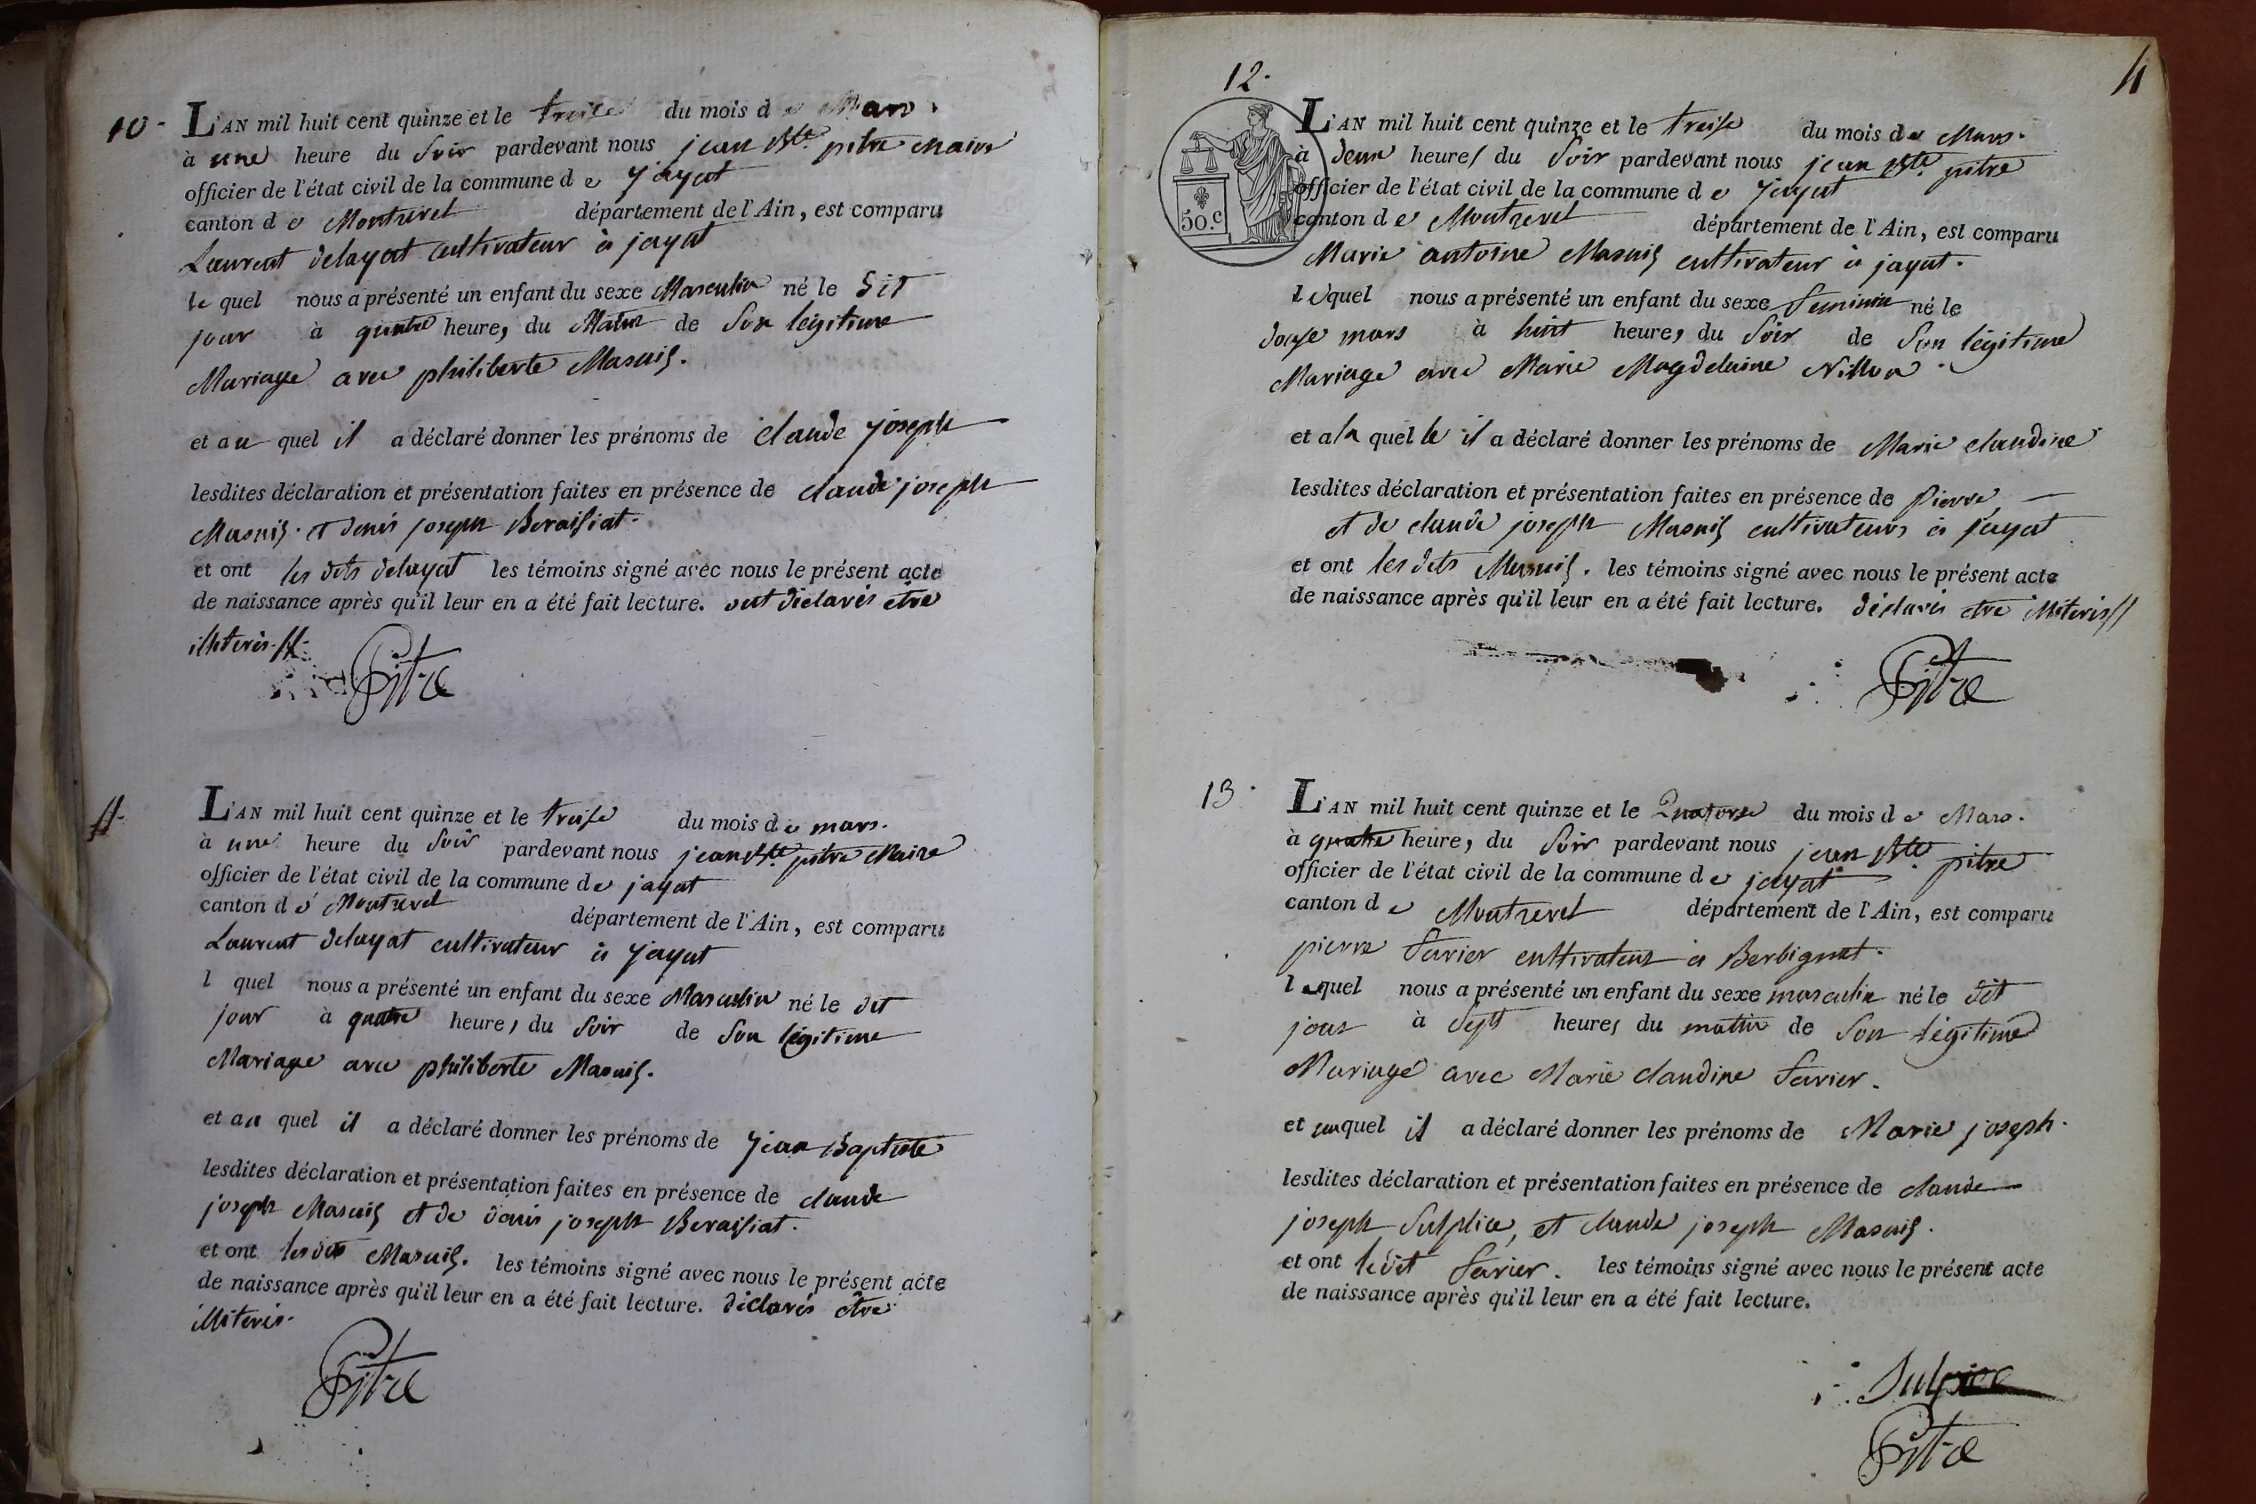 10.
L'AN mil huit cent quinze et le treise du mois de Mars.
à une heure du Soir pardevant nous jean Bte. pitre Maire
officier de l'état civil de la commune de jayat
canton de Montrevel département de l'Ain, est comparu
Laurent delayat cultivateur à jayat
le quel nous a présenté un enfant du sexe Masculin né le dit
jour à quatre heures du Matin de Son légitime
Mariage avec philiberte Masuis.
et au quel il a déclaré donner les prénoms de claude joseph
lesdites déclaration et présentation faites en présence de claude joseph
Masuis. et denis joseph Beraisiat.
et ont les dits delayat les témoins signé avec nous le présent acte
de naissance après qu'il leur en a été fait lecture. ont déclarés être
illiterés.//.
Pitre
11.
L'AN mil huit cent quinze et le treise du mois de mars.
à une heure du Soir pardevant nous jean Bte pitre Maire
officier de l'état civil de la commune de jayat
canton de Montrevel département de l'Ain, est comparu
Laurent delayat cultivateur à jayat
l quel nous a présenté un enfant du sexe Masculin né le dit
jour à quatre heures du Soir de Son légitime
Mariage avec philiberte Masuis.
et au quel il a déclaré donner les prénoms de jean Baptiste
lesdites déclaration et présentation faites en présence de claude
joseph Masuis et de denis joseph Beraisiat.
et ont lesdits Masuis. les témoins signé avec nous le présent acte
de naissance après qu'il leur en a été fait lecture. déclarés être
illiterés.
Pitre
4
12.
50.c
L'AN mil huit cent quinze et le treise du mois de Mars.
à deux heures du Soir pardevant nous jean Bte. pitre
officier de l'état civil de la commune de jayat
canton de Montrevel département de l'Ain, est comparu
Marie antoine Masuis cultivateur à jayat.
lequel nous a présenté un enfant du sexe feminin né le
douse mars à huit heures du Soir de Son légitime
Mariage avec Marie Magdelaine Nillon.
et a la quelle il a déclaré donner les prénoms de Marie claudine
lesdites déclaration et présentation faites en présence de Pierre
et de claude joseph Masuis cultivateurs à jayat
et ont les dits Masuis. les témoins signé avec nous le présent acte
de naissance après qu'il leur en a été fait lecture. déclarés etre illiterés//
Pitre
13.
L'AN mil huit cent quinze et le Quatorse du mois de Mars.
à quatre heures du Soir pardevant nous jean Bte. pitre
officier de l'état civil de la commune de jayat
canton de Montrevel département de l'Ain, est comparu
pierre favier cultivateur à Berbignat.
lequel nous a présenté un enfant du sexe masculin né le dit
jour à Sept heures du matin de Son légitime
Mariage avec Marie claudine favier.
et auquel il a déclaré donner les prénoms de Marie joseph.
lesdites déclaration et présentation faites en présence de claude
joseph Sulpice, et claude joseph Masuis.
et ont le dit favier. les témoins signé avec nous le présent acte
de naissance après qu'il leur en a été fait lecture.
Sulpice
Pitre